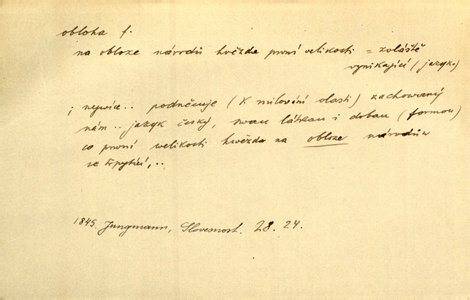 obloha f.
na obloze národů hvězda první velikosti = zvláště
vynikající (jazyk.)
; nejvíce.. podněcuje (k milování vlasti) zachovaný
nám.. jazyk český, svau látkau i dobau (formou)
co první velikosti hvězda na obloze národův
se třpytící,..
1845 Jungmann, Slovesnost. 28. 24.